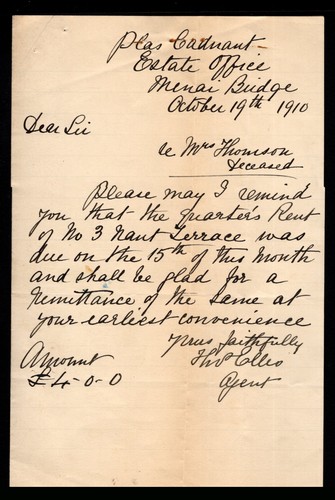 Plas Cadnant
Estate Office
Menai Bridge
October 19th 1910
Dear Sir
re Mrs Thomson
deceased
Please may I remind
you that the Quarter's Rent
of No 3 Nant Terrace was
due on the 15th of this Month
and shall be glad for a
remittance of the same at
your earliest convenience
Yours faithfully
Amount
Thos Ellis
£4-0-0
Agent